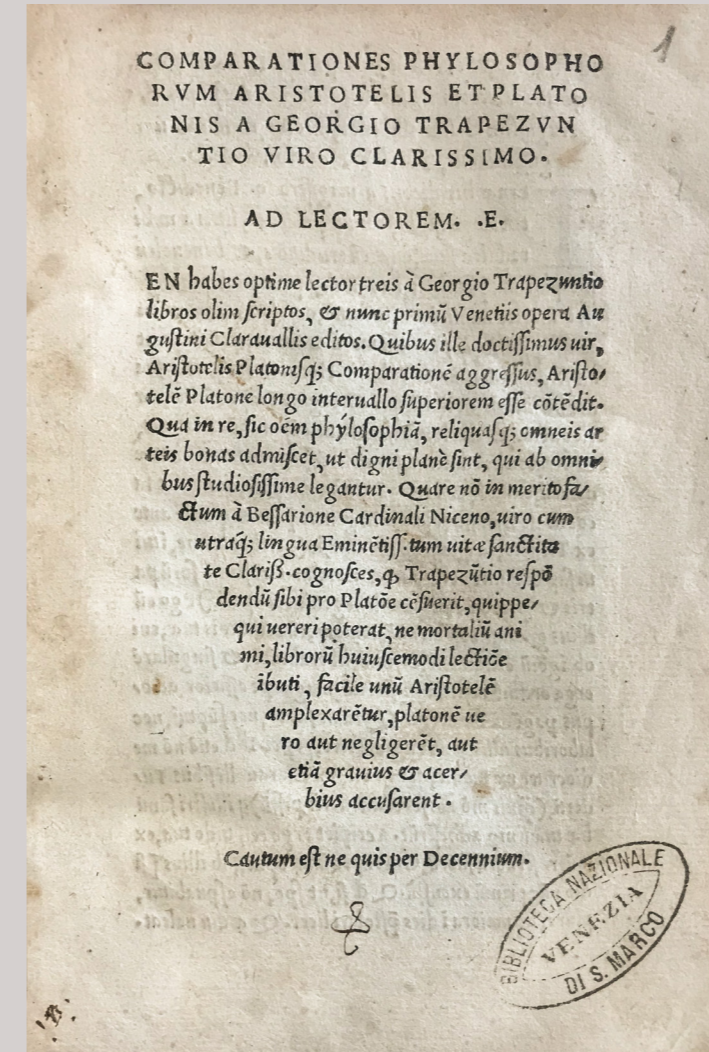 1
COMPARATIONES PHYLOSOPHO
RVM ARISTOTELIS ET PLATO
NIS A GEORGIO TRAPEZVN
TIO VIRO CLARISSIMO.
AD LECTOREM. .E.
EN habes optime lector treis à Georgio Trapezuntio
libros olim scriptos, & nunc primũ Venetiis opera Au
gustini Clarauallis editos. Quibus ille doctissimus uir,
Aristotelis Platonisq; Comparationẽ aggressus, Aristo/
telẽ Platone longo interuallo superiorem esse cõtẽdit.
Qua in re, sic oẽm phýlosophiã, reliquasq; omneis ar
teis bonas admiscet, ut digni planè sint, qui ab omni/
bus studiosissime legantur. Quare nõ in merito fa/
ctum à Bessarione Cardinali Niceno, uiro cum
utraq́; lingua Eminẽtiss. tum uitæ sanctita
te Clariss. cognosces, ꝙ Trapezũtio respõ
dendũ sibi pro Platõe cẽsuerit, quippe/
qui uereri poterat, ne mortaliũ ani
mi, librorũ huiuscemodi lectiõe
ĩbuti, facile unũ Aristotelẽ
amplexarẽtur, platonẽ ue
ro aut negligerẽt, aut
etiã grauius & acer/
bius accusarent.
Cautum est ne quis per Decennium.
BIBLIOTECA NAZIONALE
VENEZIA
DI S. MARCO